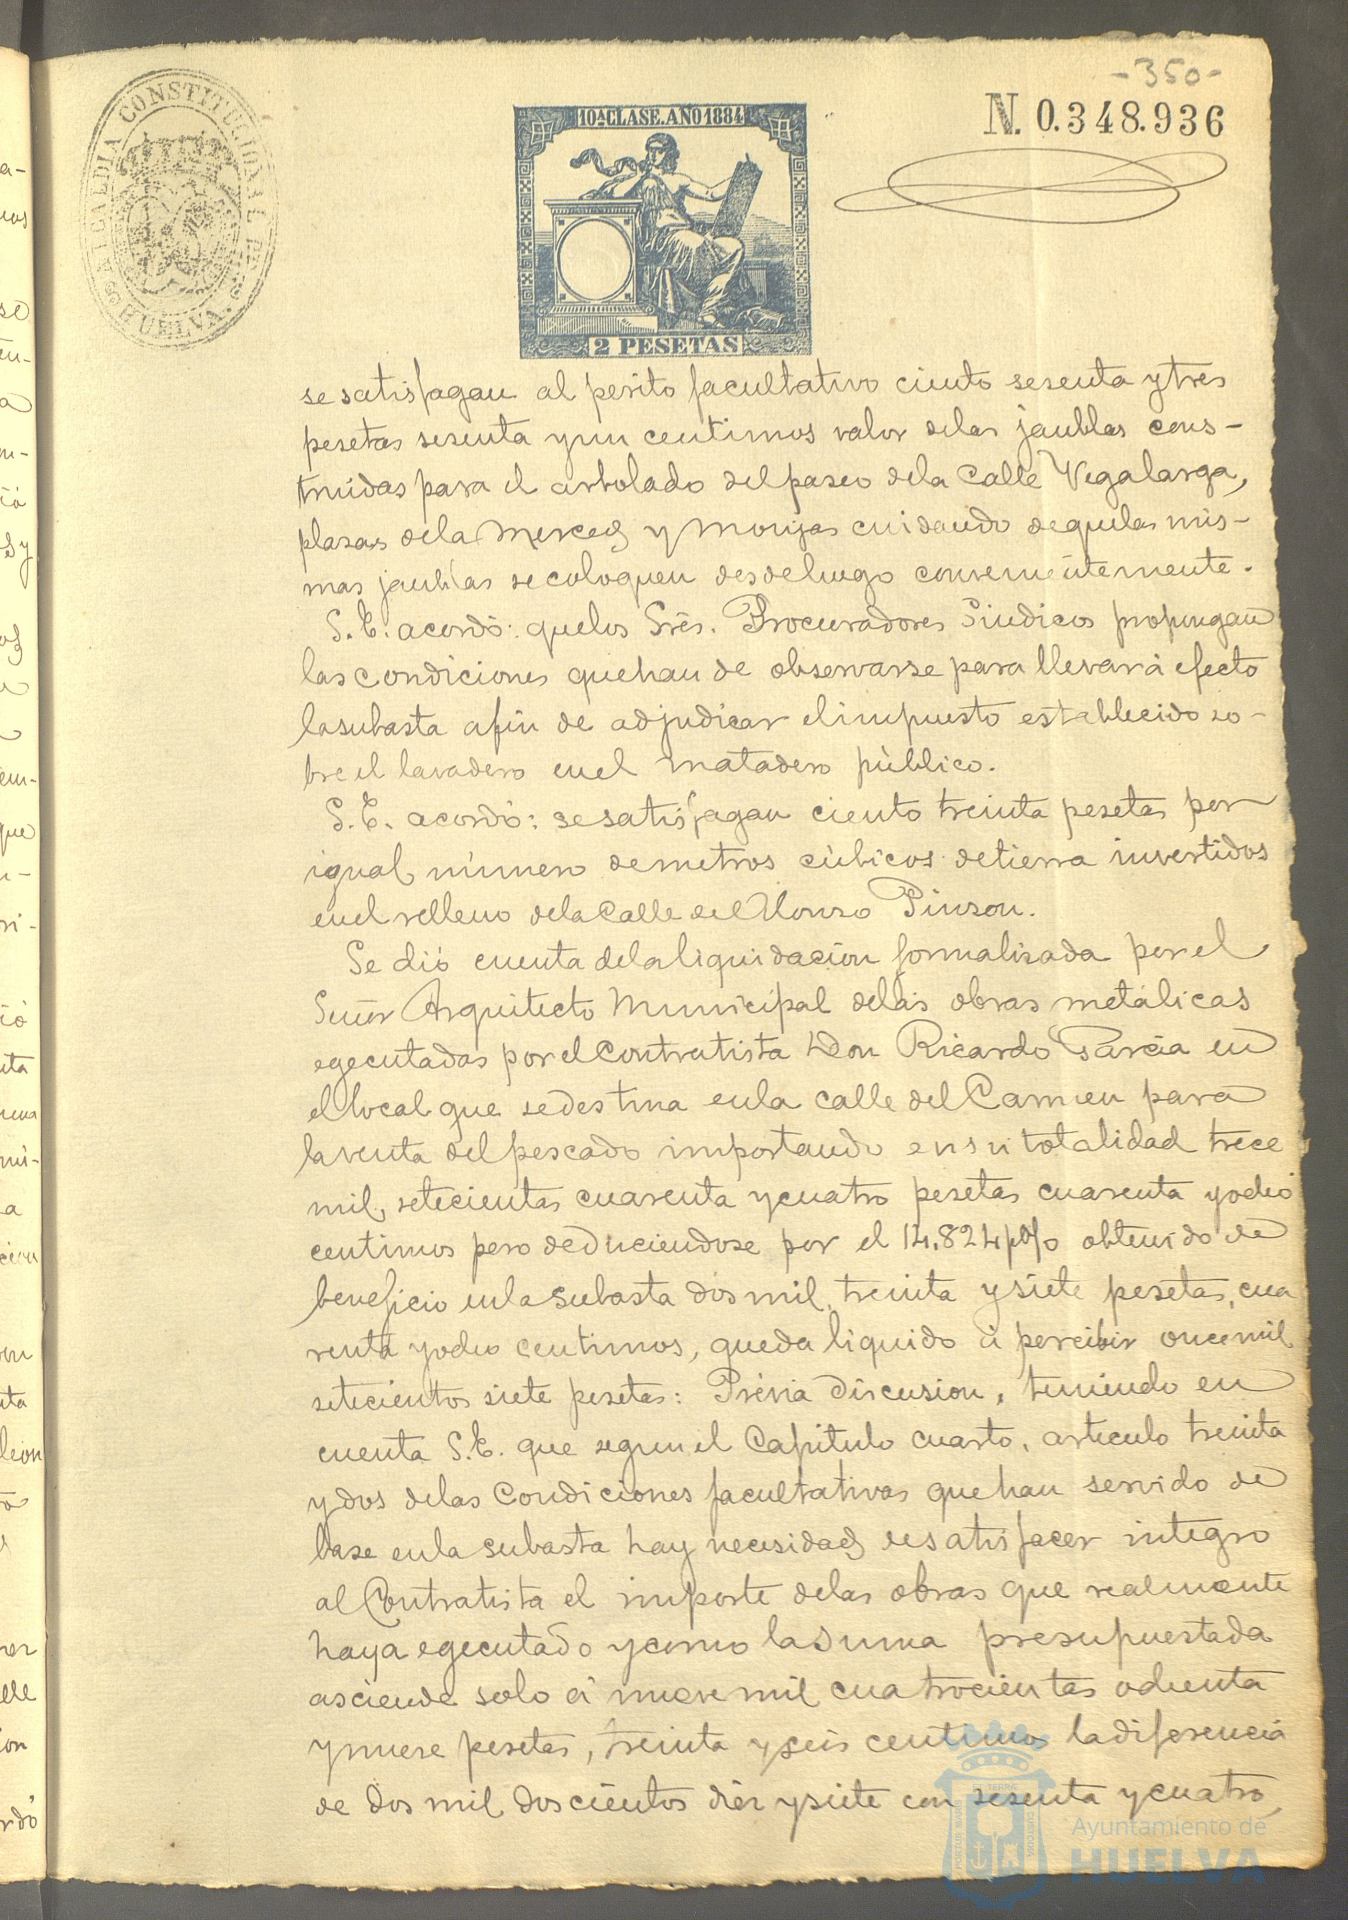 -350-
N. 0.348.936
ALCALDIA CONSTITUCIONAL DE
HUELVA.
10ª CLASE. AÑO 1884
2 PESETAS
se satisfagan al perito facultativo ciento sesenta y tres
pesetas sesenta y un centimos valor de las jaublas cons-
truidas para el arbolado del paseo de la Calle Vegalarga,
plazas de la Merced y Monjas cuidando de que las mis-
mas jaublas se coloquen desde luego convenientemente.
S. E. acordó: que los Srēs. Procuradores Sindicos propongan
las condiciones que han de observarse para llevar á efecto
la subasta afin de adjudicar el impuesto establecido so-
bre el lavadero en el matadero público.
S. E. acordó: se satisfagan ciento treinta pesetas por
igual número de metros cúbicos de tierra invertidos
en el relleno de la Calle de Alonso Pinzon.
Se dió cuenta de la liquidación formalizada por el
Señor Arquitecto Municipal de las obras metálicas
egecutadas por el Contratista Don Ricardo Garcia en
el local que se destina en la calle del Carmen para
la venta del pescado importando en su totalidad trece
mil, setecientas cuarenta y cuatro pesetas cuarenta y ocho
centimos pero deduciendose por el 14.824 p% obtenido de
beneficio en la subasta dos mil, treinta y siete pesetas, cua
renta y ocho centimos, queda liquido á percibir once mil
setecientos siete pesetas: Prévia discusion, teniendo en
cuenta S. E. que segun el Capitulo cuarto, articulo treinta
y dos de las Condiciones facultativas que han servido de
base en la subasta hay necesidad de satisfacer integro
al Contratista el importe de las obras que realmente
haya egecutado y como la suma presupuestada
asciende solo á nueve mil cuatrocientas ochenta
y nueve pesetas, treinta y seis centimos la diferencia
de dos mil doscientos diez y siete con sesenta y cuatro
Ayuntamiento de
HUELVA